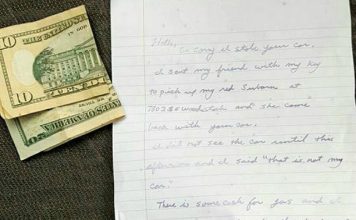 10
THE UNITED S
IN GOD
TEN D
Hello,
So sorry I stole your car.
I sent my friend with my key
to pick up my red Subaru at
7802 SE Woodstock and she came
back with your car.
I did not see the car until this
afternoon and I said "that is not my
car."
There is some cash for gas and I